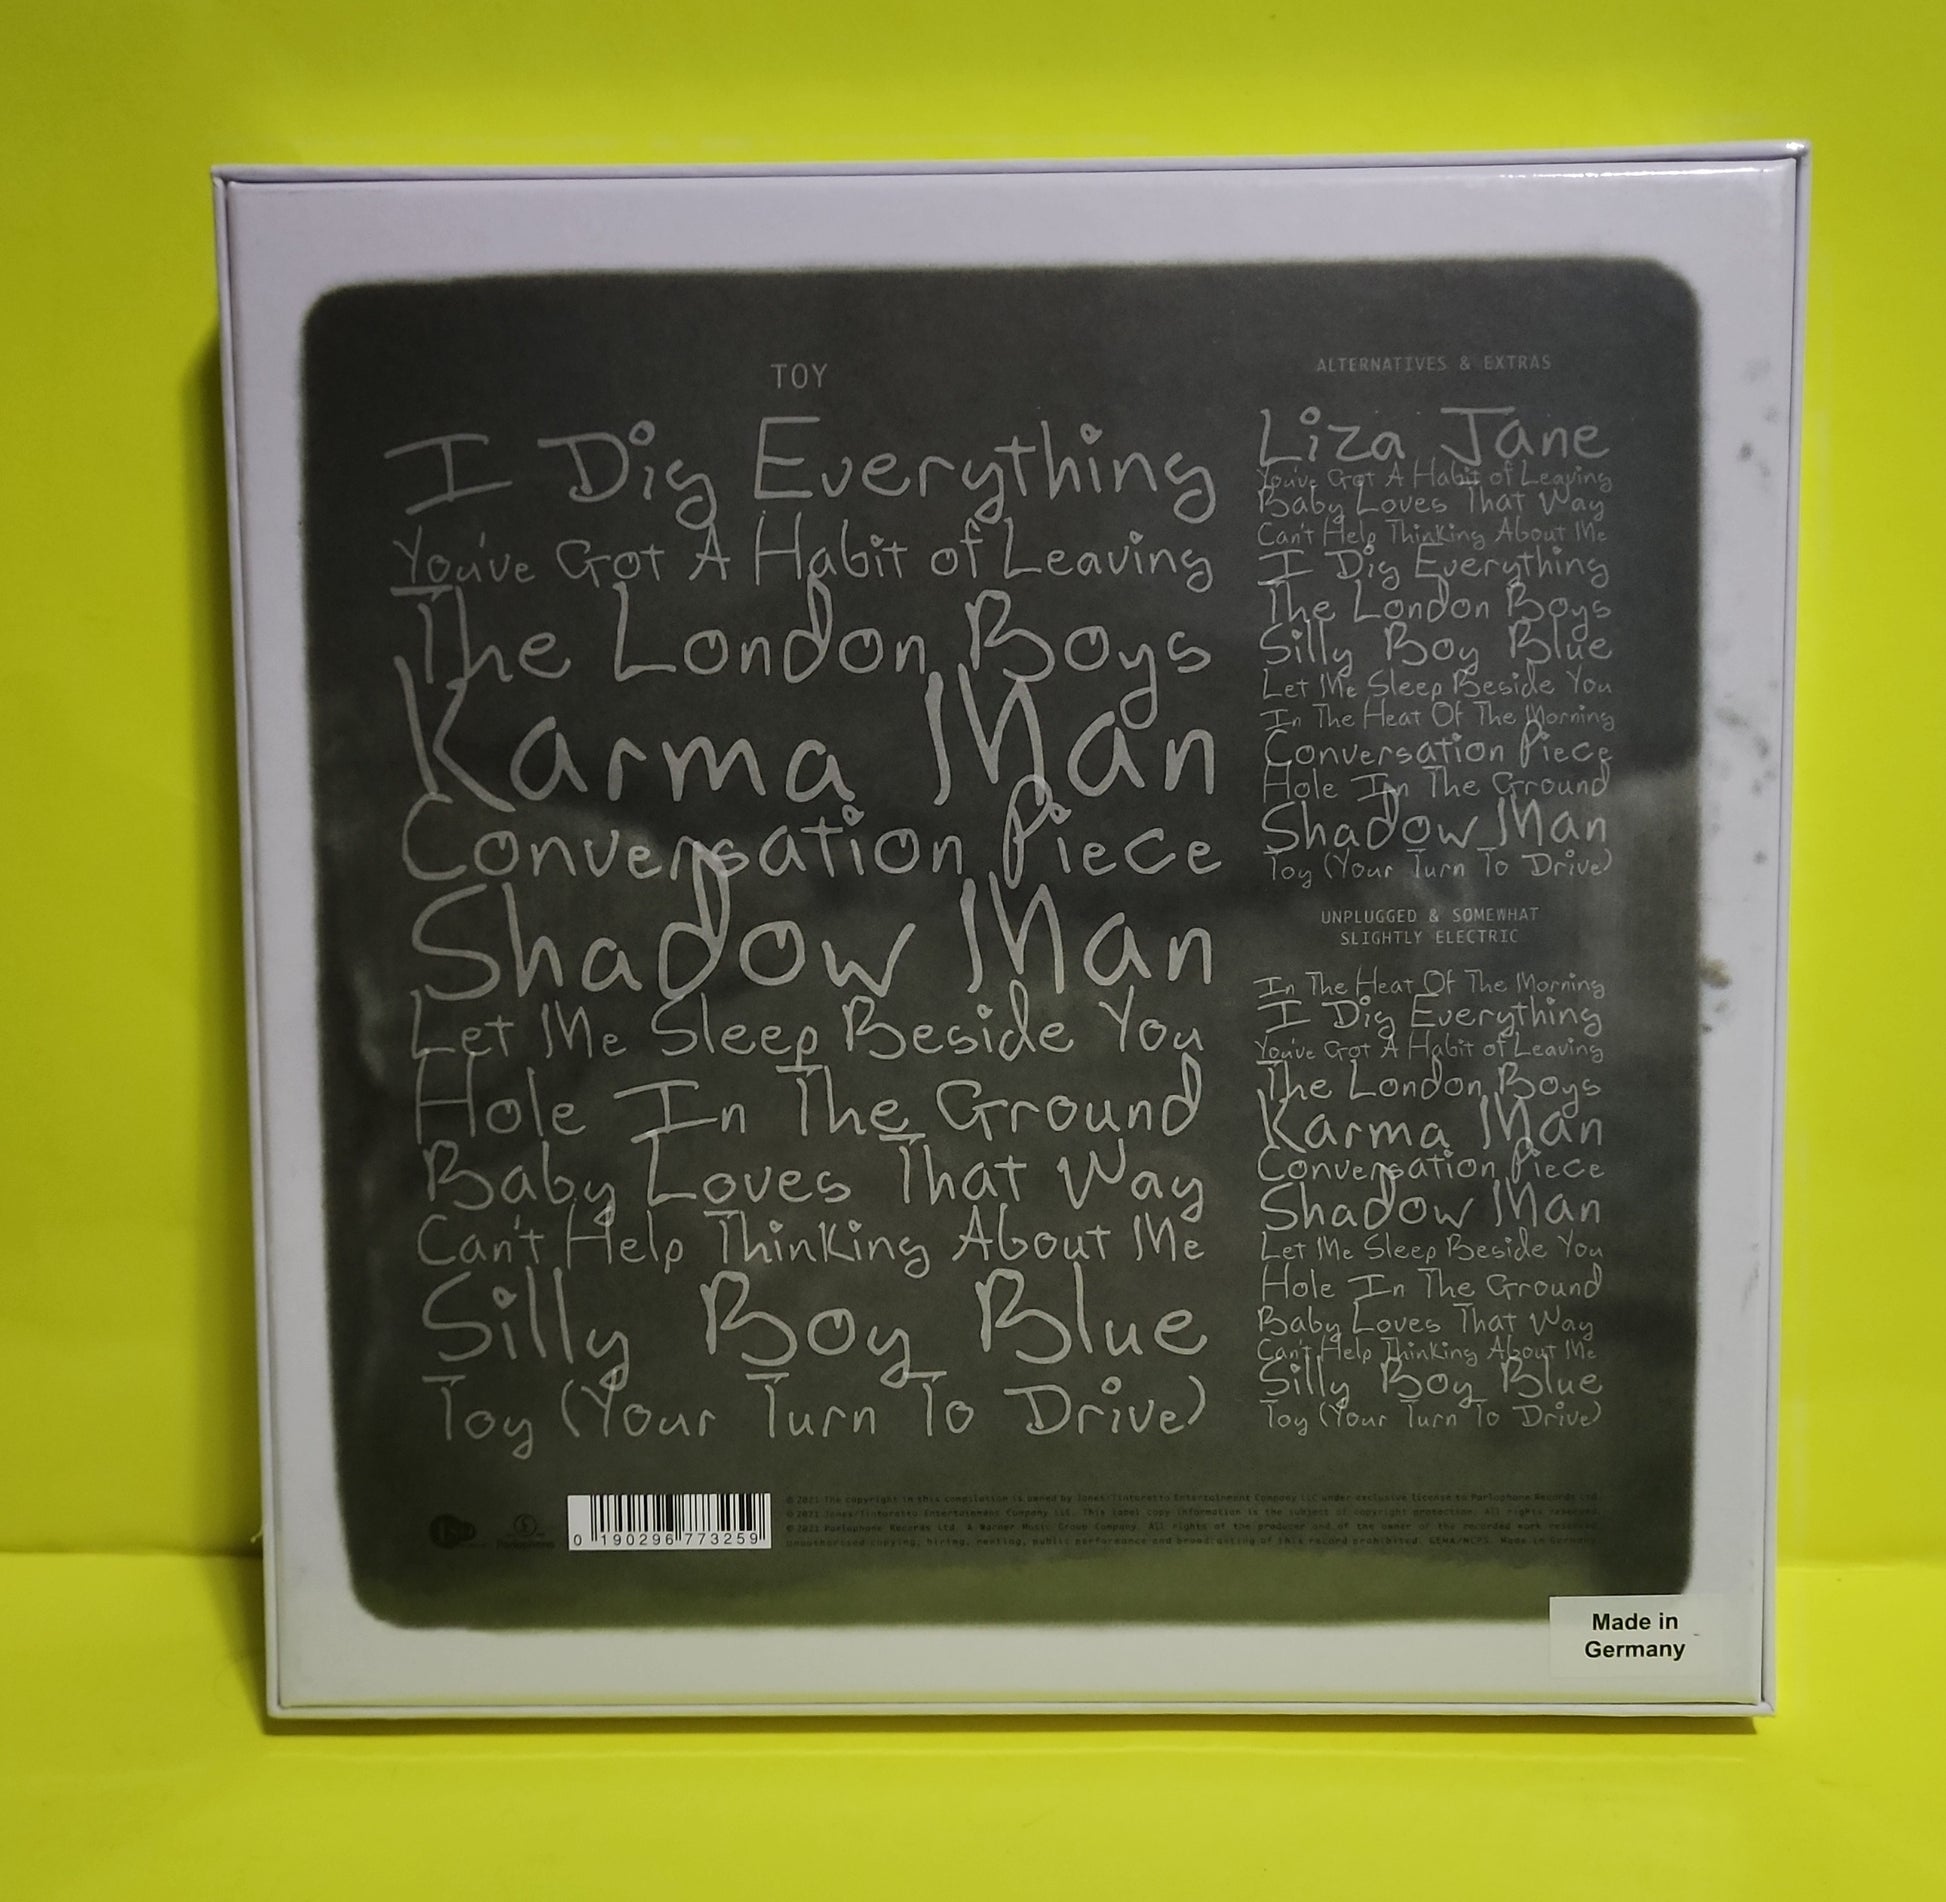 TOY
I Dig Everything
You've Got A Habit of Leaving
The London Boys
Karma Man
Conversation Piece
Shadow Man
Let Me Sleep Beside You
Hole In The Ground
Baby Loves That Way
Can't Help Thinking About Me
Silly Boy Blue
Toy (Your Turn To Drive)
ALTERNATIVES & EXTRAS
Liza Jane
You've Got A Habit of Leaving
Baby Loves That Way
Can't Help Thinking About Me
I Dig Everything
The London Boys
Silly Boy Blue
Let Me Sleep Beside You
In The Heat Of The Morning
Conversation Piece
Hole In The Ground
Shadow Man
Toy (Your Turn To Drive)
UNPLUGGED & SOMEWHAT
SLIGHTLY ELECTRIC
In The Heat Of The Morning
I Dig Everything
You've Got A Habit of Leaving
The London Boys
Karma Man
Conversation Piece
Shadow Man
Let Me Sleep Beside You
Hole In The Ground
Baby Loves That Way
Can't Help Thinking About Me
Silly Boy Blue
Toy (Your Turn To Drive)
Parlophone
0 190296 773259
℗ 2021 The copyright in this compilation is owned by Jones/Tintoretto Entertainment Company LLC under exclusive license to Parlophone Records Ltd.
© 2021 Jones/Tintoretto Entertainment Company LLC. This label copy information is the subject of copyright protection. All rights reserved.
© 2021 Parlophone Records Ltd. A Warner Music Group Company. All rights of the producer and of the owner of the recorded work reserved.
Unauthorised copying, hiring, renting, public performance and broadcasting of this record prohibited. GEMA/MCPS. Made in Germany
Made in
Germany